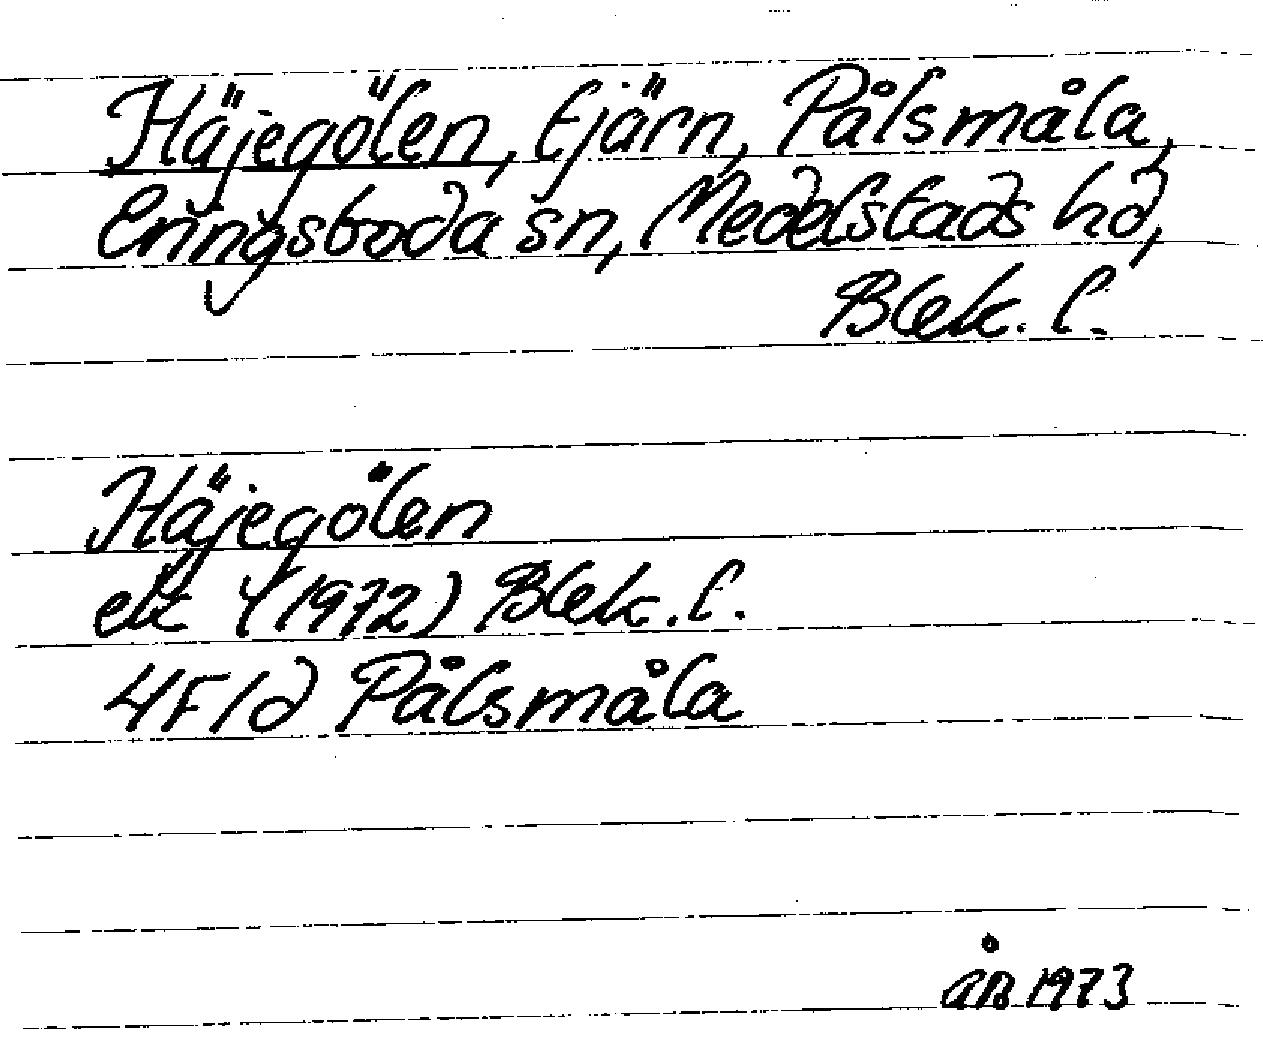 Häjegölen, tjärn, Pålsmåla,
Eringsboda sn, Medelstads hd,
Blek. l.
Häjegölen
ek 4 (1972) Blek. l.
4F/d Pålsmåla
1973